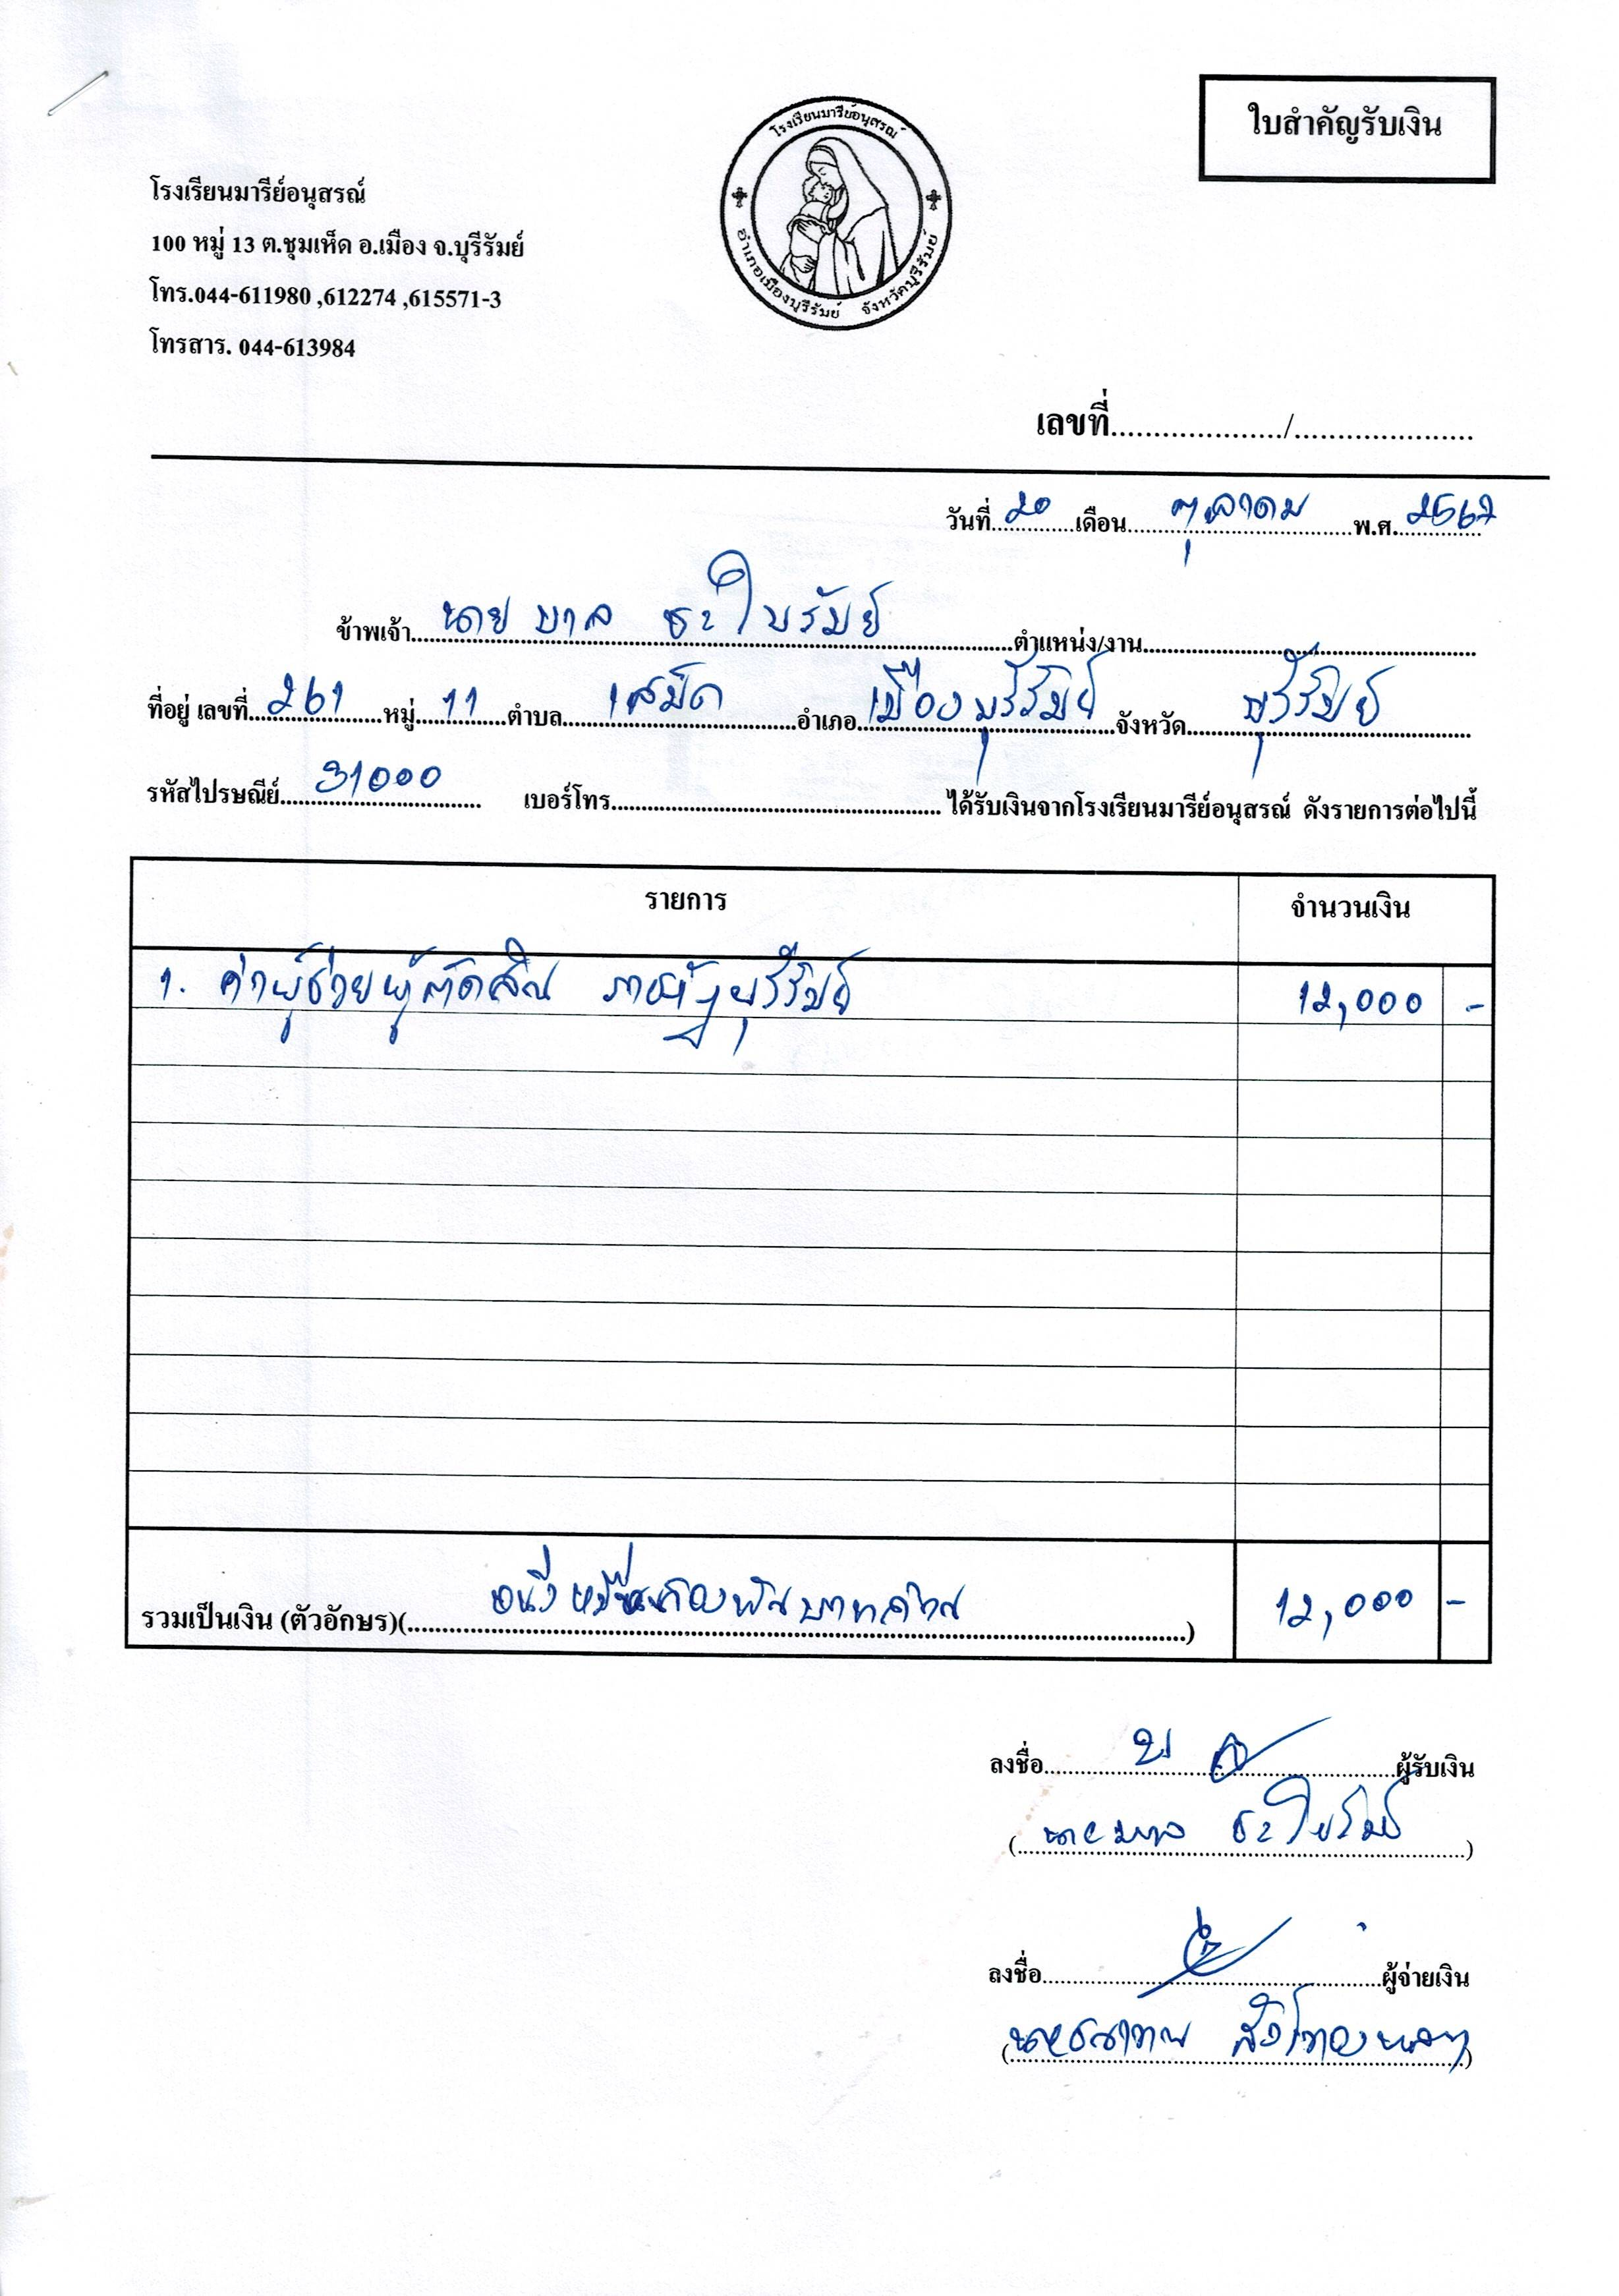 ใบสำคัญรับเงิน
โรงเรียนมารีย์อนุสรณ์
อำเภอเมืองบุรีรัมย์ จังหวัดบุรีรัมย์
โรงเรียนมารีย์อนุสรณ์
100 หมู่ 13 ต.ชุมเห็ด อ.เมือง จ.บุรีรัมย์
โทร.044-611980 ,612274 ,615571-3
โทรสาร. 044-613984
เลขที่..................../.....................
วันที่ 20 เดือน ตุลาคม พ.ศ. 2567
ข้าพเจ้า นาย บาล ธะใบรัมย์ ตำแหน่ง/งาน
ที่อยู่ เลขที่ 261 หมู่ 11 ตำบล เสม็ด อำเภอ เมืองบุรีรัมย์ จังหวัด บุรีรัมย์
รหัสไปรษณีย์ 31000 เบอร์โทร ได้รับเงินจากโรงเรียนมารีย์อนุสรณ์ ดังรายการต่อไปนี้
รายการ จำนวนเงิน
1. ค่าผู้ช่วยผู้ตัดสิน ราชภัฏบุรีรัมย์ 12,000 -
รวมเป็นเงิน (ตัวอักษร)( หนึ่งหมื่นสองพันบาทถ้วน ) 12,000 -
ลงชื่อ ผู้รับเงิน
( นายบาล ธะใบรัมย์ )
ลงชื่อ ผู้จ่ายเงิน